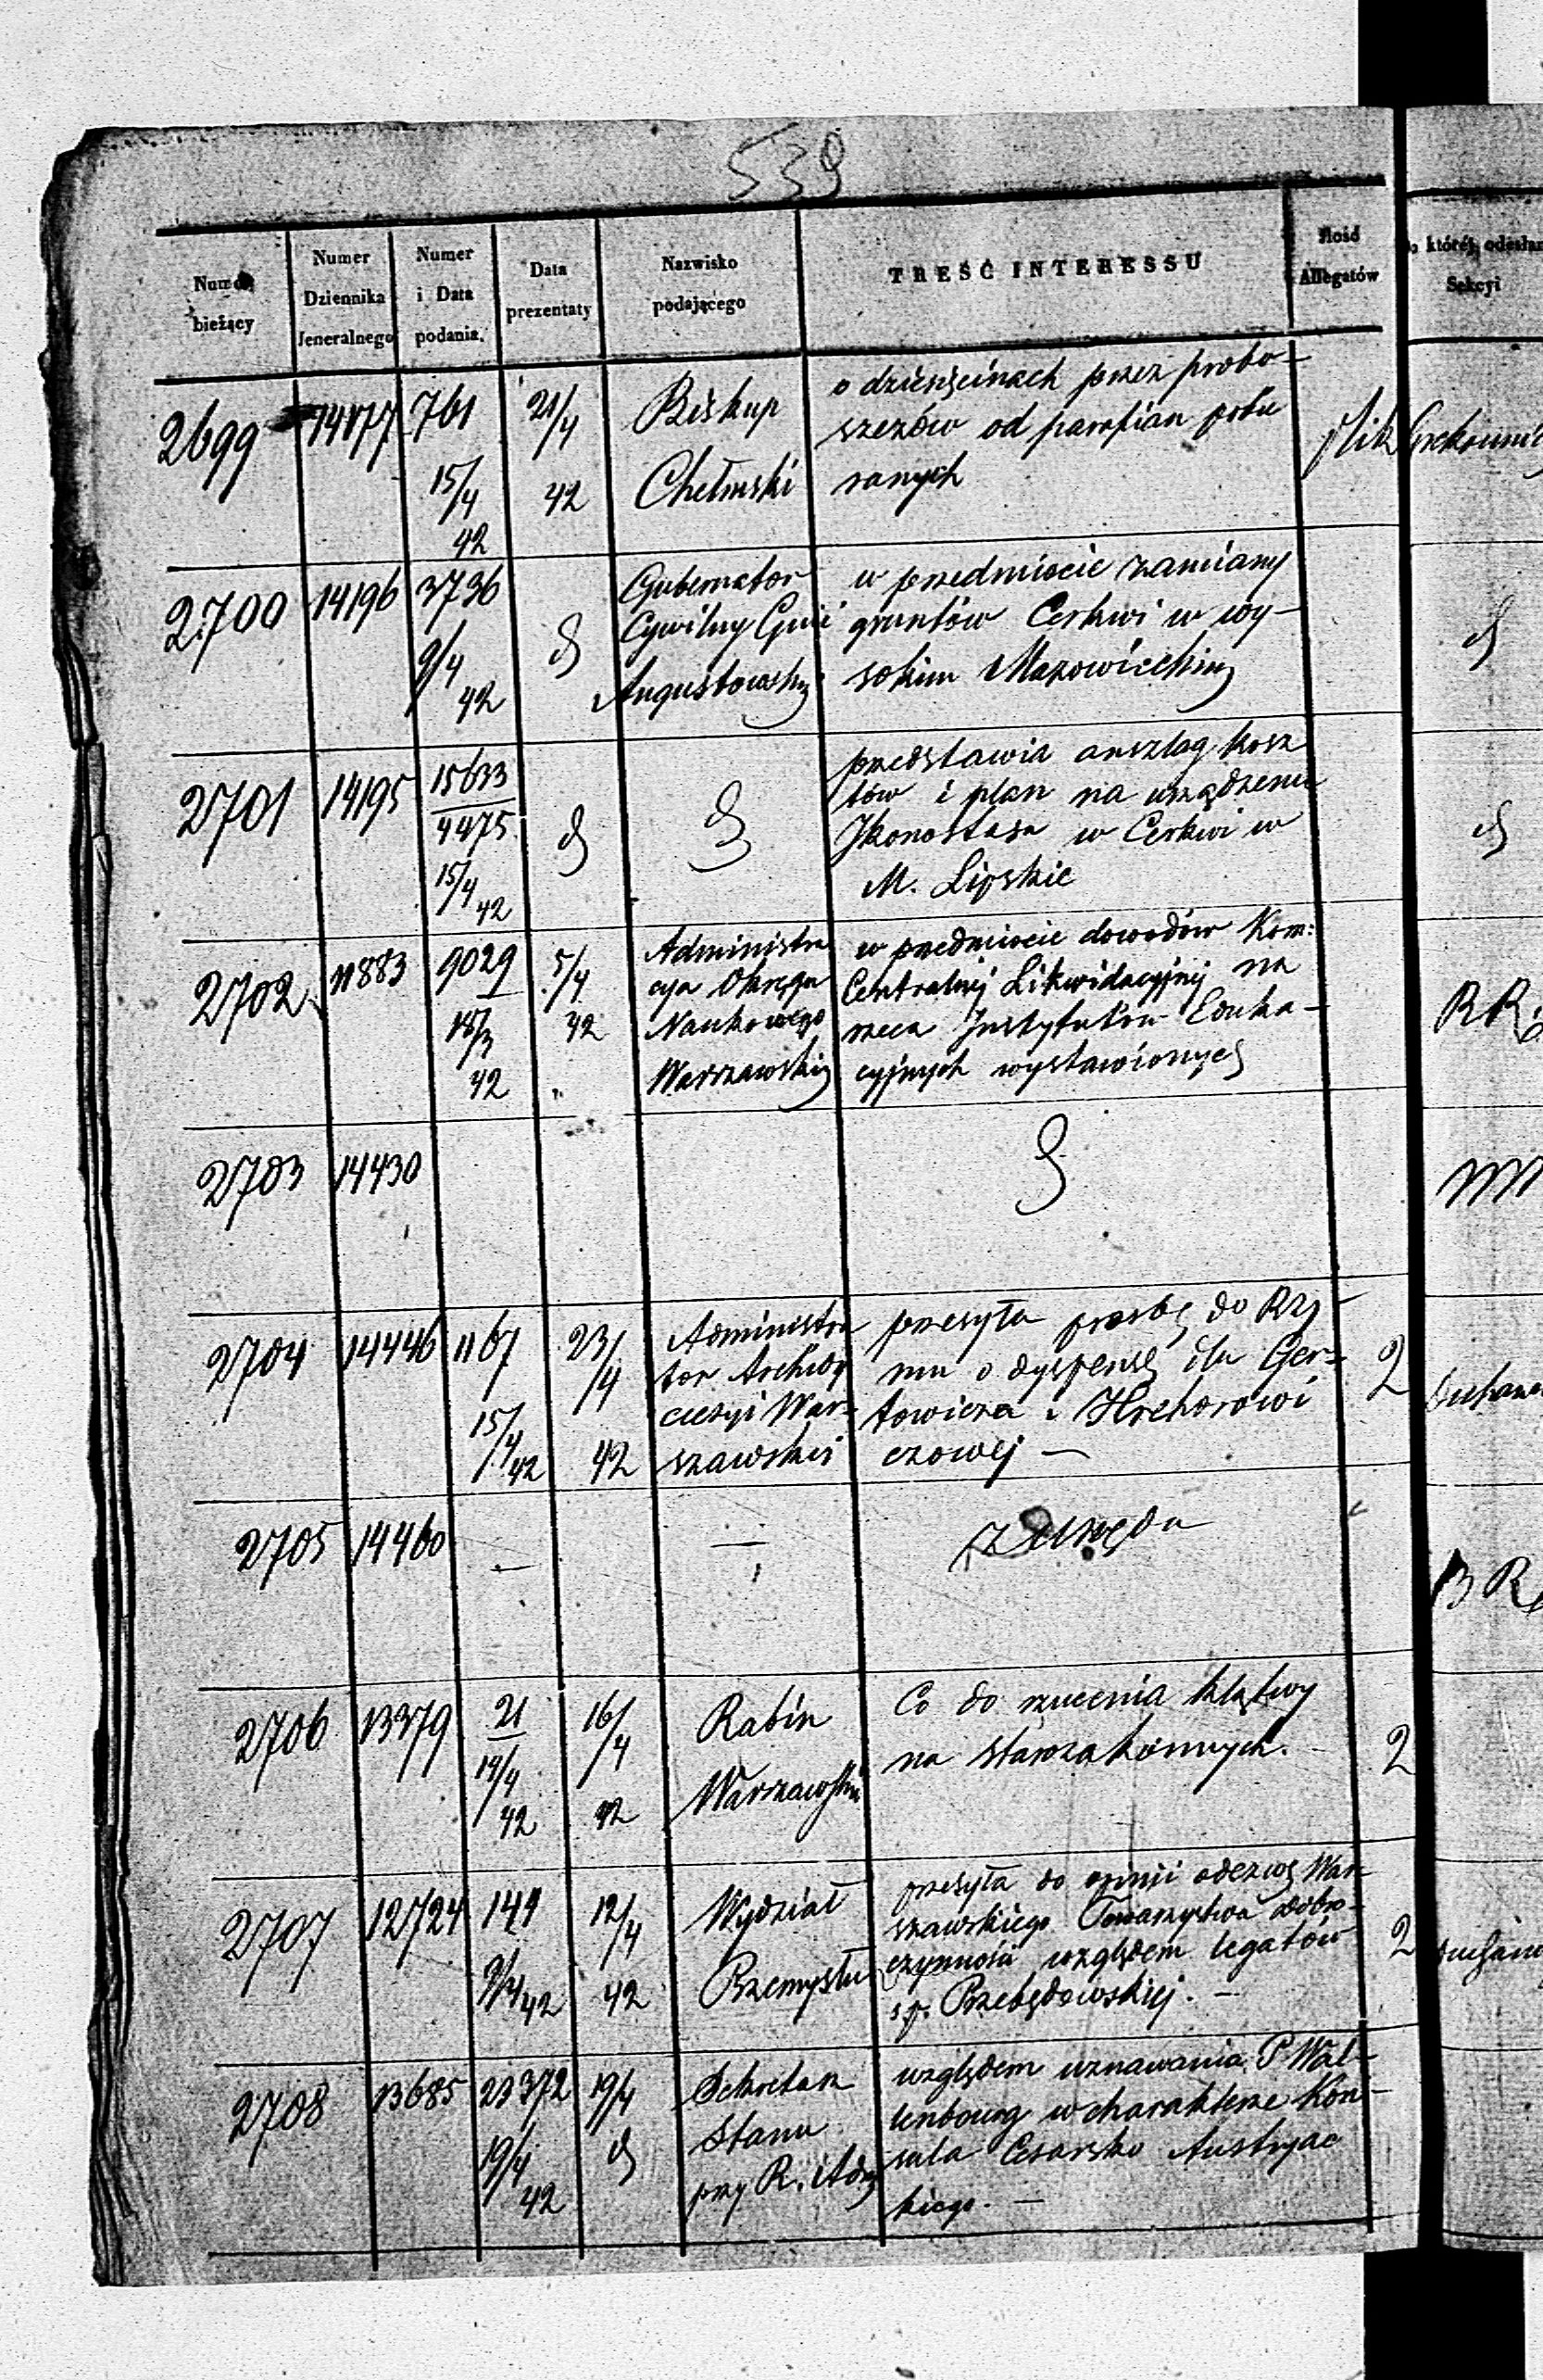 539
Numer bieżący
Numer Dziennika Jeneralnego
Numer i Data podania.
Data prezentaty
Nazwisko podającego
TREŚĆ INTERESSU
Ilość Allegatów
której odesłan
Sekcyi
2699 14177 761 15/4 42 21/4 42
Biskup
Chełmski
o dziesięcinach przez probo-
szczów od parafian pobie
ranych
plik
2700 14196 3736 9/4 42 d
Gubernator
Cywilny Gnii
Augustowskiej
w przedmiocie zamiany
gruntów Cerkwi w wy-
sokim Mazowieckim
d
2701 14195 15633/4475 15/4 42 d
d
przedstawia anszlag kosz
tów i plan na urządzenie
Ikonostasu w Cerkwi w
M. Lipskie
d
2702 11883 9029 18/3 42 5/4 42
Administra
cya Okręgu
Naukowego
Warszawskiego
w przedmiocie dowodów Kom:
Centralnej Likwidacyjnej na
rzecz Instytutów Eduka-
cyjnych wystawionych
RR.
2703 14430
d
2704 14446 1167 15/4 42 23/4 42
Administra
tor Archidy
ecezyi War-
szawskiej
przesyła prośbę do Rzy-
mu o dyspensę dla Ger-
towicza i Hrehorowi
czowej —
2
2705 14460 — —
Z Urzędu
BR
2706 13379 21 14/4 42 16/4 42
Rabin
Warszawski
Co do rzucenia klątwy
na starozakonnych. —
2
2707 12724 149 9/4 42 12/4 42
Wydział
Przemysłu
przesyła do opinii odezwę War
szawskiego Towarzystwa dobro-
czynności względem legatów
ś.p. Przebędowskiej. —
2
2708 13685 23372 19/4 42 19/4 d
Sekretarz
Stanu
przy R. Adm
względem uznawania P Wal-
lenbourg w charakterze Kon-
sula Cesarsko Austryac
kiego. —